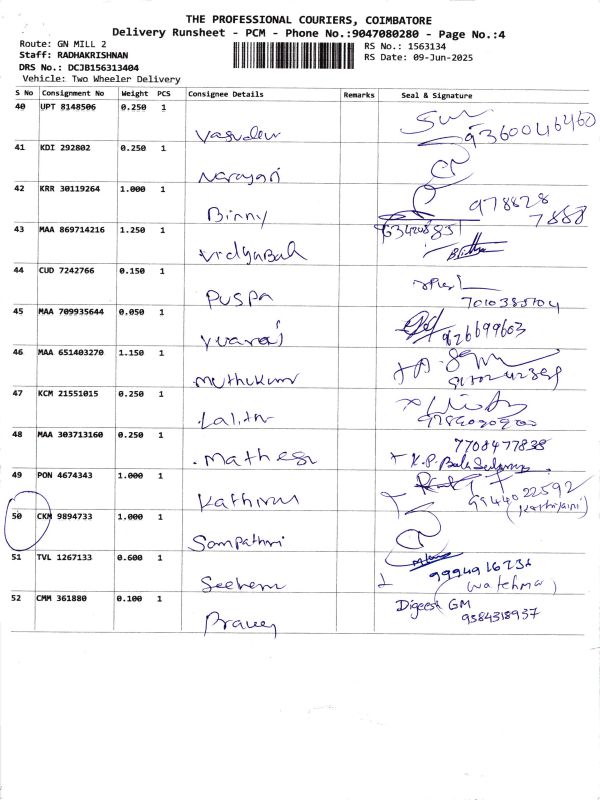 THE PROFESSIONAL COURIERS, COIMBATORE
Delivery Runsheet - PCM - Phone No.:9047080280 - Page No.:4
Route: GN MILL 2
RS No.: 1563134
Staff: RADHAKRISHNAN
RS Date: 09-Jun-2025
DRS No.: DCJB156313404
Vehicle: Two Wheeler Delivery
S No Consignment No Weight PCS Consignee Details Remarks Seal & Signature
40 UPT 8148506 0.250 1
Vasudev 9360046460
41 KDI 292802 0.250 1
Narayani
42 KRR 30119264 1.000 1
Binny 978828
7888
43 MAA 869714216 1.250 1
Vidyabal
44 CUD 7242766 0.150 1
Puspa
7010385104
45 MAA 709935644 0.050 1
Yuaraj 9626699603
46 MAA 651403270 1.150 1
Muthukumr
47 KCM 21551015 0.250 1
Lalith
48 MAA 303713160 0.250 1
7708477838
Mathesh
49 PON 4674343 1.000 1
Kathirvu 9944022592
50 CKM 9894733 1.000 1
Sampathri
51 TVL 1267133 0.600 1
(Watchma)
52 CMM 361880 0.100 1
Digeesh GM
Pravey 9384318937